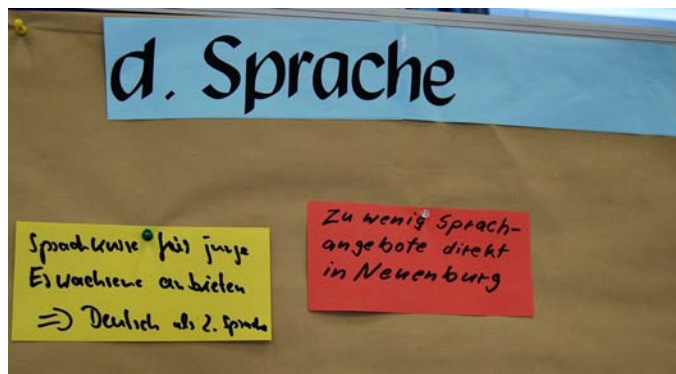 d. Sprache
Sprachkurse für junge
Erwachsene anbieten
=> Deutsch als 2. Sprache
Zu wenig Sprach-
angebote direkt
in Neuenburg